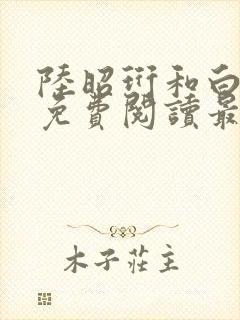 陸昭衍和白
免費閱讀最
木子莊主